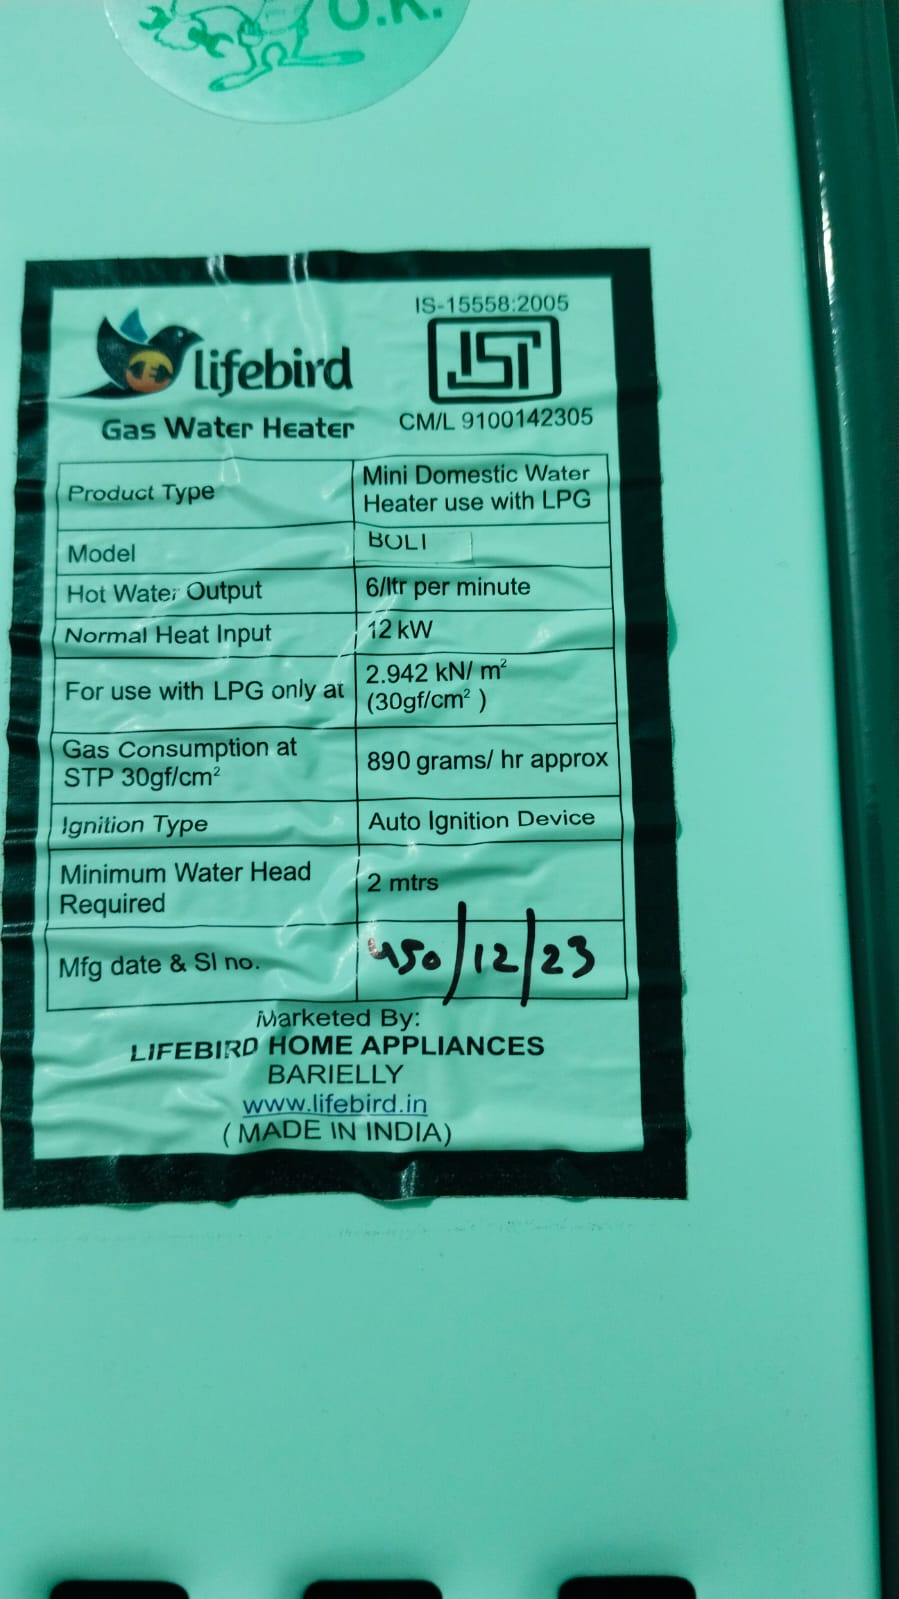 O.K.
lifebird
Gas Water Heater
IS-15558:2005
ISI
CM/L 9100142305
Product Type
Mini Domestic Water
Heater use with LPG
Model
Hot Water Output
6/ltr per minute
Normal Heat Input
12 kW
For use with LPG only at
2.942 kN/ m²
(30gf/cm² )
Gas Consumption at
STP 30gf/cm²
890 grams/ hr approx
Ignition Type
Auto Ignition Device
Minimum Water Head
Required
2 mtrs
Mfg date & Sl no.
450/12/23
Marketed By:
LIFEBIRD HOME APPLIANCES
BARIELLY
www.lifebird.in
( MADE IN INDIA)